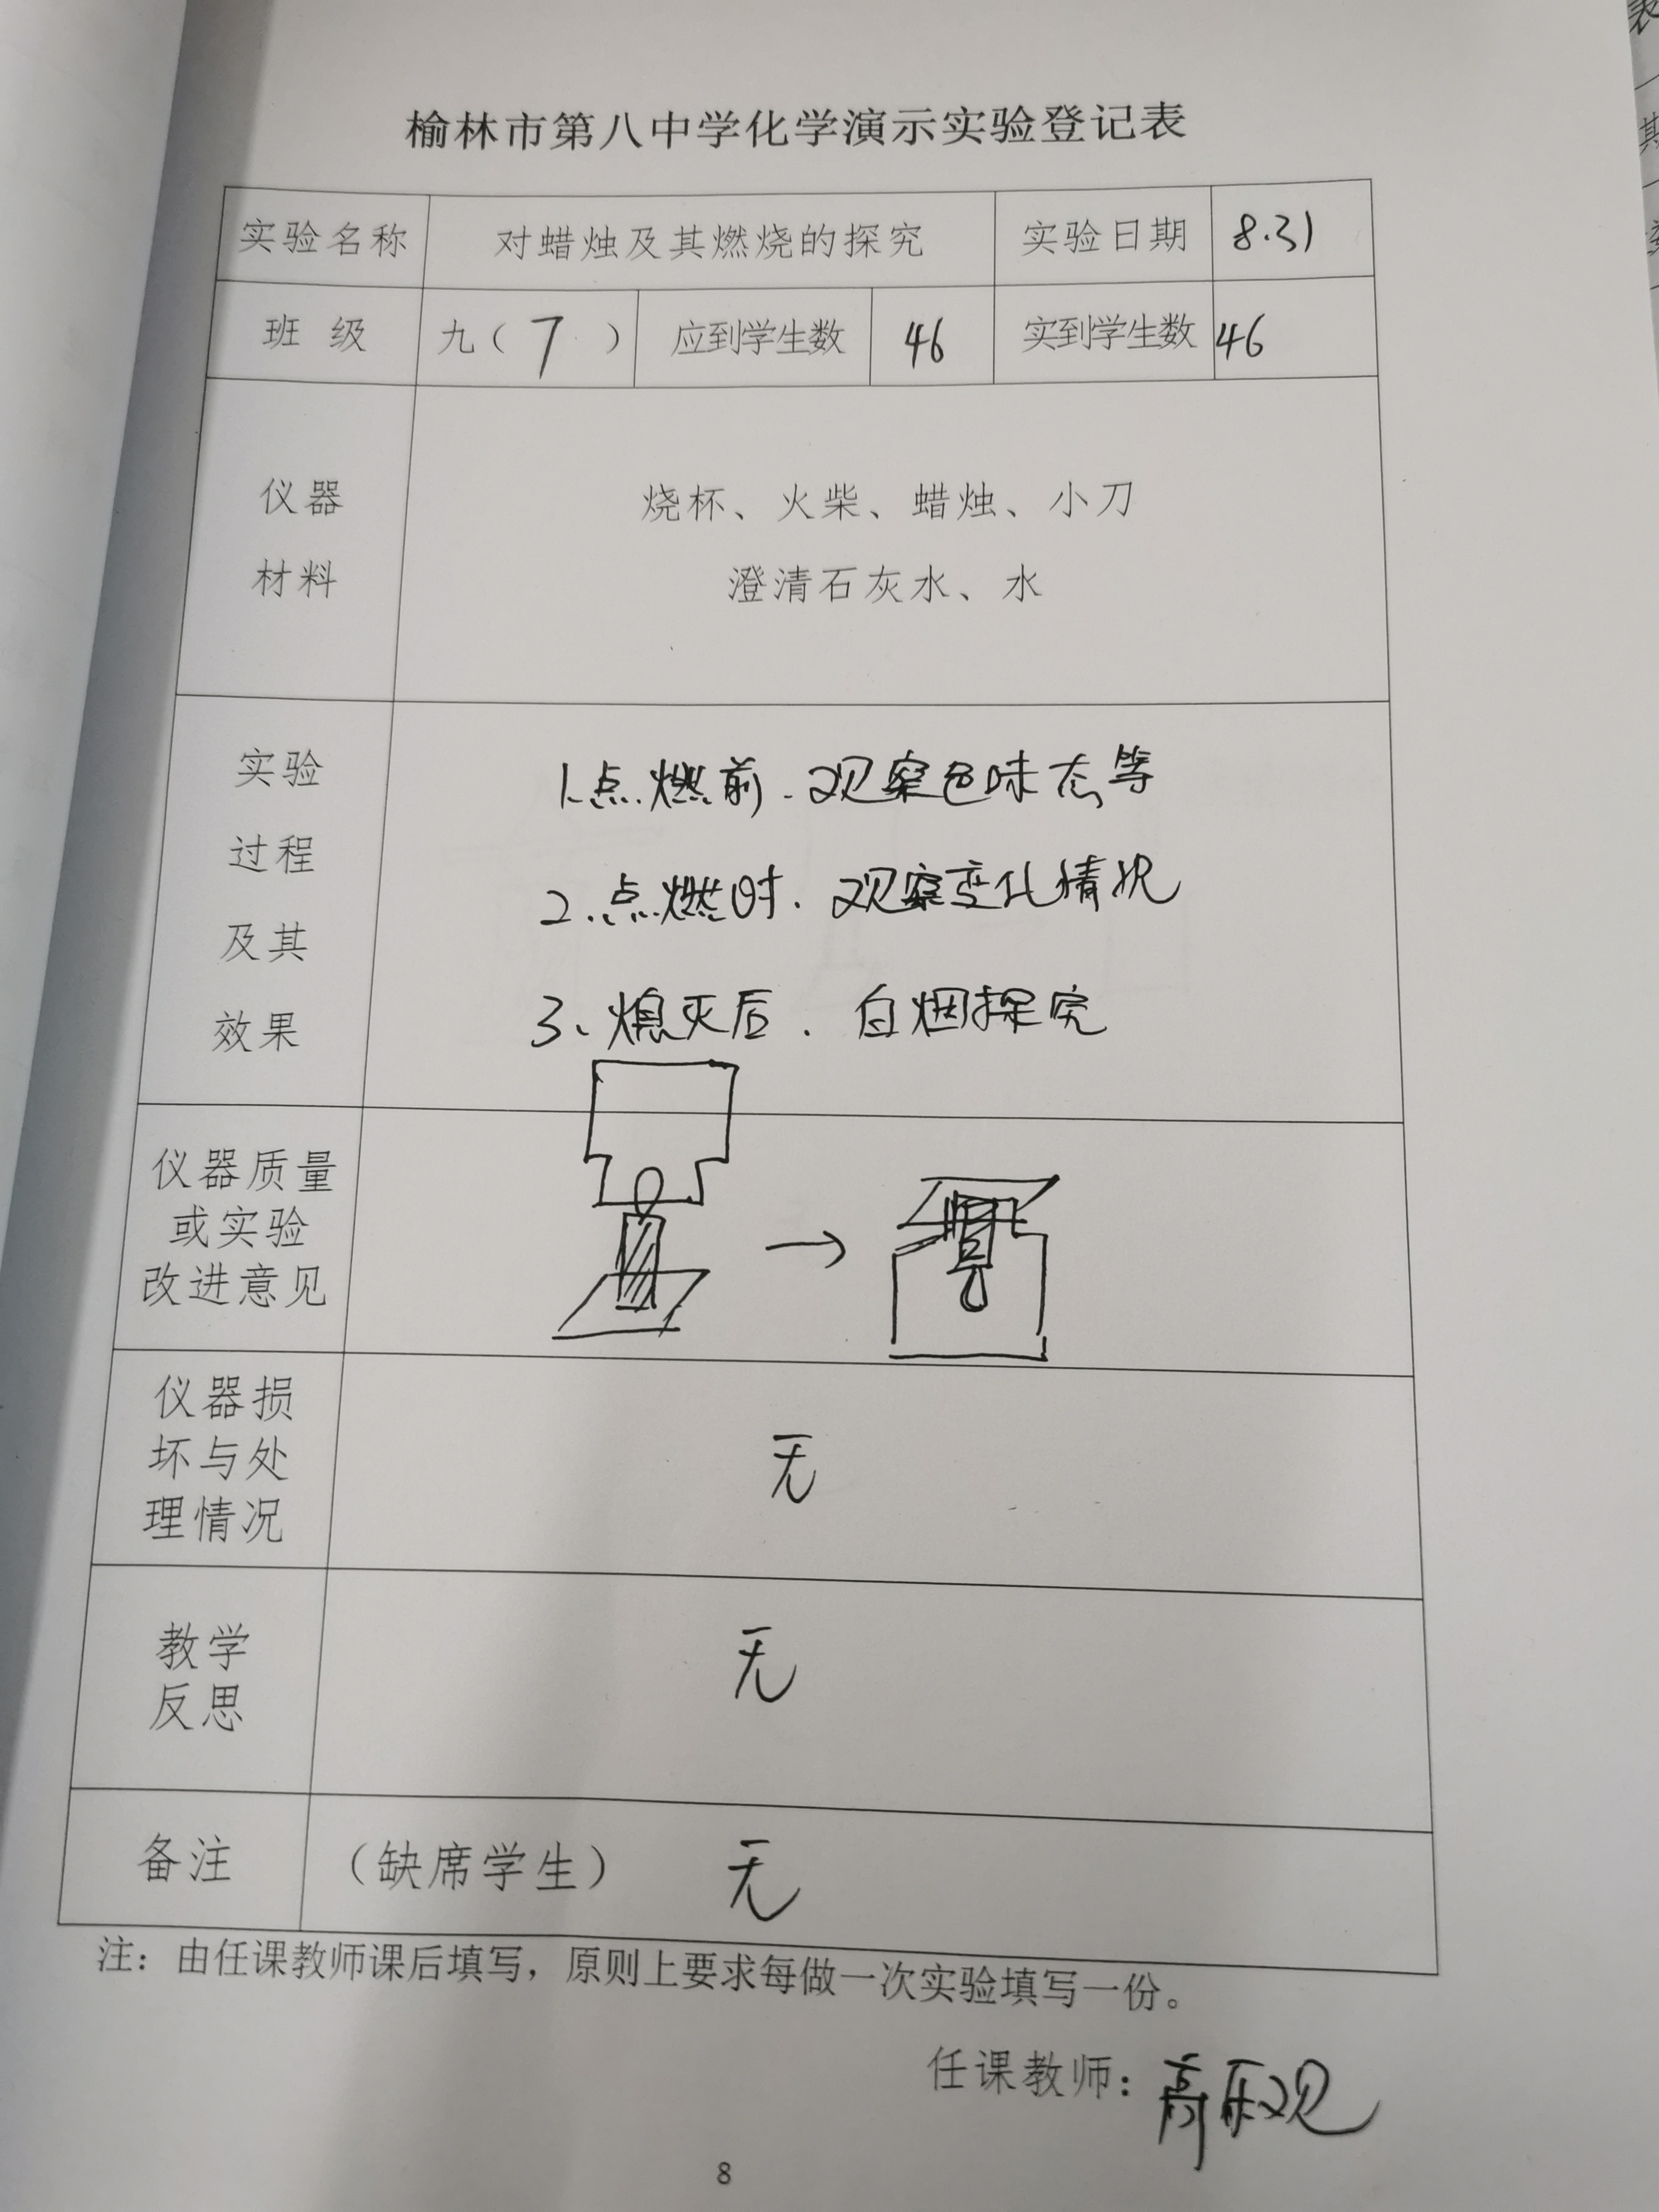 榆林市第八中学化学演示实验登记表
实验名称 对蜡烛及其燃烧的探究 实验日期 8.31
班 级 九（7） 应到学生数 46 实到学生数 46
仪器
材料
烧杯、火柴、蜡烛、小刀
澄清石灰水、水
实验
过程
及其
效果
1.点燃前.观察色味态等
2.点燃时.观察变化情况
3、熄灭后.白烟探究
仪器质量
或实验
改进意见
仪器损
坏与处
理情况
无
教学
反思
无
备注 （缺席学生） 无
注：由任课教师课后填写，原则上要求每做一次实验填写一份。
任课教师：高乐观
8